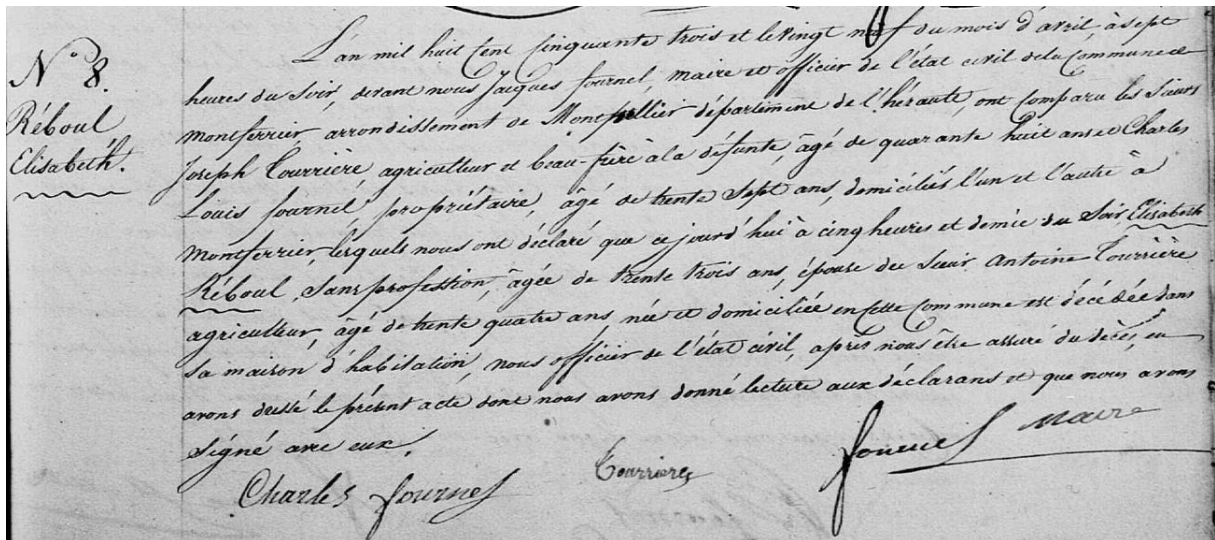 N° 8.
Réboul
Elisabeth.
L'an mil huit cent cinquante trois et le vingt neuf du mois d'avril, à sept
heures du soir, devant nous Jacques fournel, maire et officier de l'état civil de la Commune de
montferrier, arrondissement de Montpellier département de l'hérault, ont comparu les Sieurs
Joseph Tourrière, agriculteur et beau-frère à la défunte, âgé de quarante huit ans et Charles
Louis fournel propriétaire, âgé de trente Sept ans, domiciliés l'un et l'autre à
montferrier, lesquels nous ont déclaré que ce jourd'hui à cinq heures et demie du Soir, Elisabeth
Réboul, Sans profession, âgée de trente trois ans, épouse du Sieur Antoine Tourrière
agriculteur, âgé de trente quatre ans, née et domiciliée en cette Commune est décédée dans
Sa maison d'habitation, nous officier de l'état civil, après nous être assuré du décès, en
avons dressé le présent acte dont nous avons donné lecture aux déclarans et que nous avons
Signé avec eux.
Charles fournel Tourrière fournel Maire